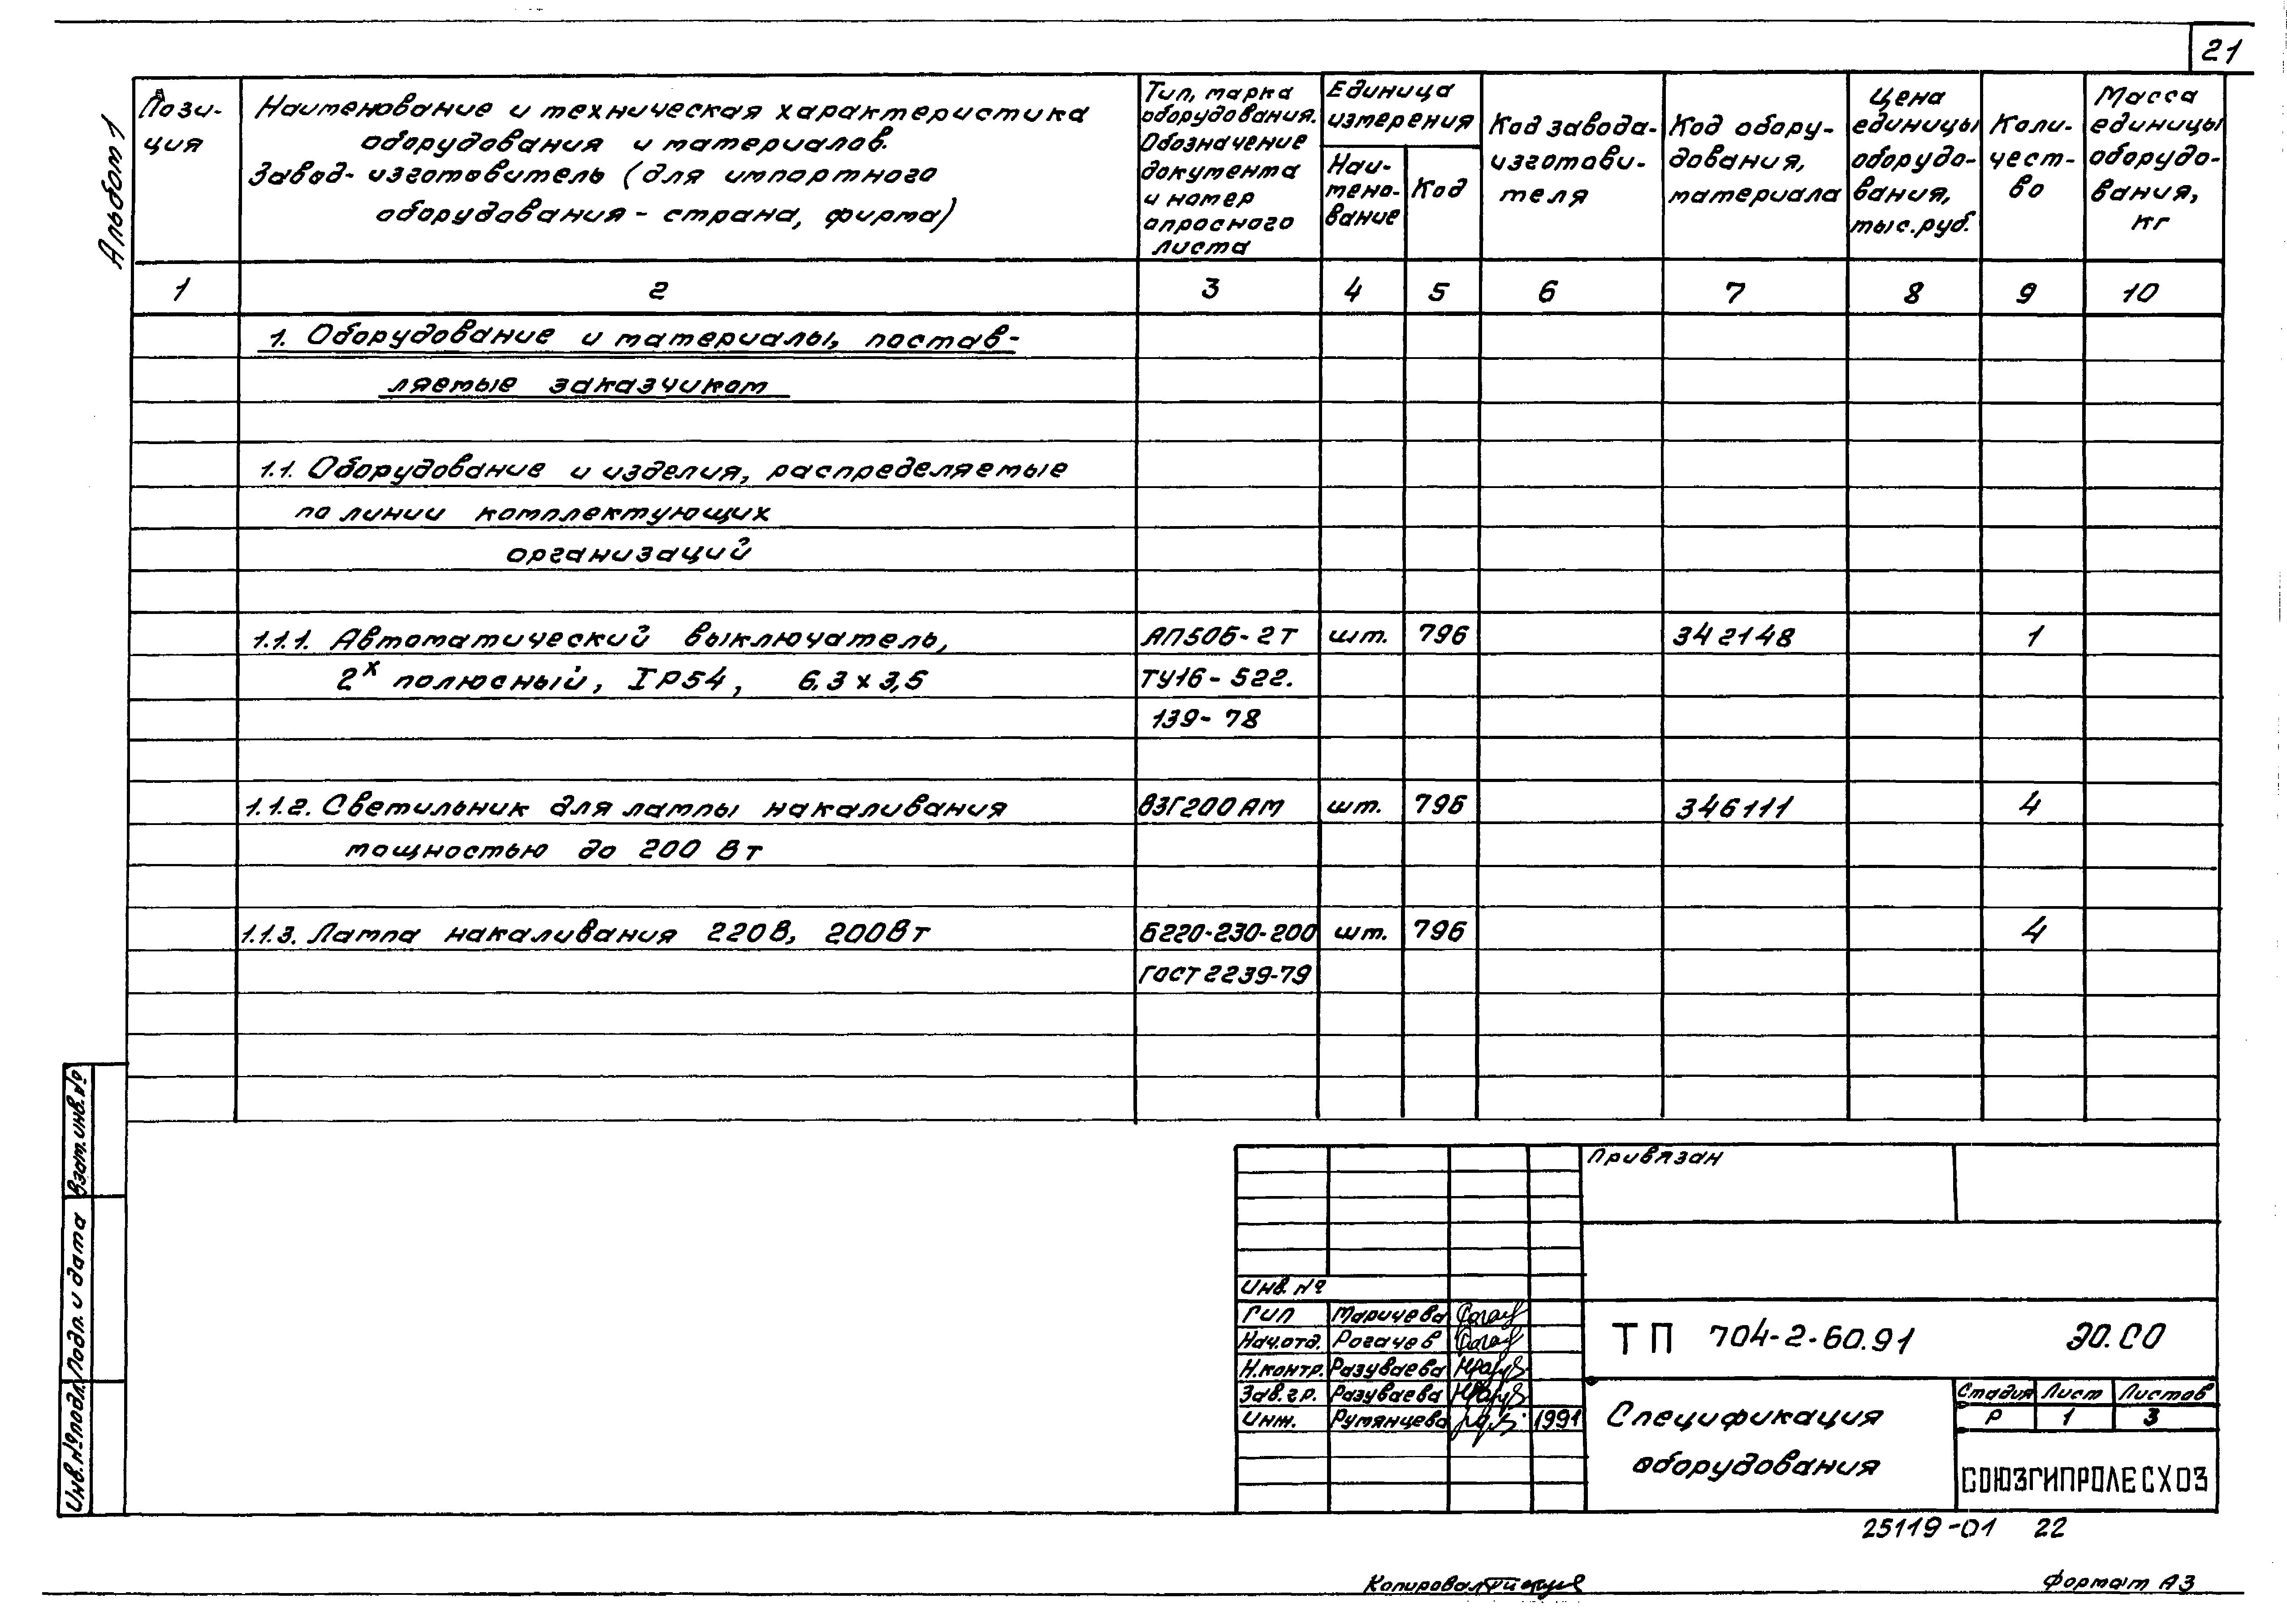 21
Альбом 1
Пози-
ция
Наименование и техническая характеристика
оборудования и материалов.
Завод-изготовитель (для импортного
оборудования - страна, фирма)
Тип, марка
оборудования.
Обозначение
документа
и номер
опросного
листа
Единица
измерения
Наи-
мено-
вание
Код
Код завода-
изготови-
теля
Код обору-
дования,
материала
Цена
единицы
оборудо-
вания,
тыс.руб.
Коли-
чест-
во
Масса
единицы
оборудо-
вания,
кг
1 2 3 4 5 6 7 8 9 10
1. Оборудование и материалы, постав-
ляемые заказчиком
1.1. Оборудование и изделия, распределяемые
по линии комплектующих
организаций
1.1.1. Автоматический выключатель, АП50Б-2Т шт. 796 342148 1
2х полюсный, IP54, 6,3 х 3,5 ТУ16-522.
139-78
1.1.2. Светильник для лампы накаливания ВЗГ200АМ шт. 796 346111 4
мощностью до 200 Вт
1.1.3. Лампа накаливания 220В, 200Вт Б220-230-200 шт. 796 4
ГОСТ 2239-79
Взам.инв.№
Подп. и дата
Инв.№подл.
Привязан
Инв. №
ГИП Маричева
Нач.отд. Рогачев
Н.контр. Разуваева
Зав.гр. Разуваева
Инж. Румянцева 1991
ТП 704-2-60.91 ЭО.СО
Спецификация
оборудования
Стадия Лист Листов
Р 1 3
СОЮЗГИПРОЛЕСХОЗ
25119-01 22
Копировал
Формат А3